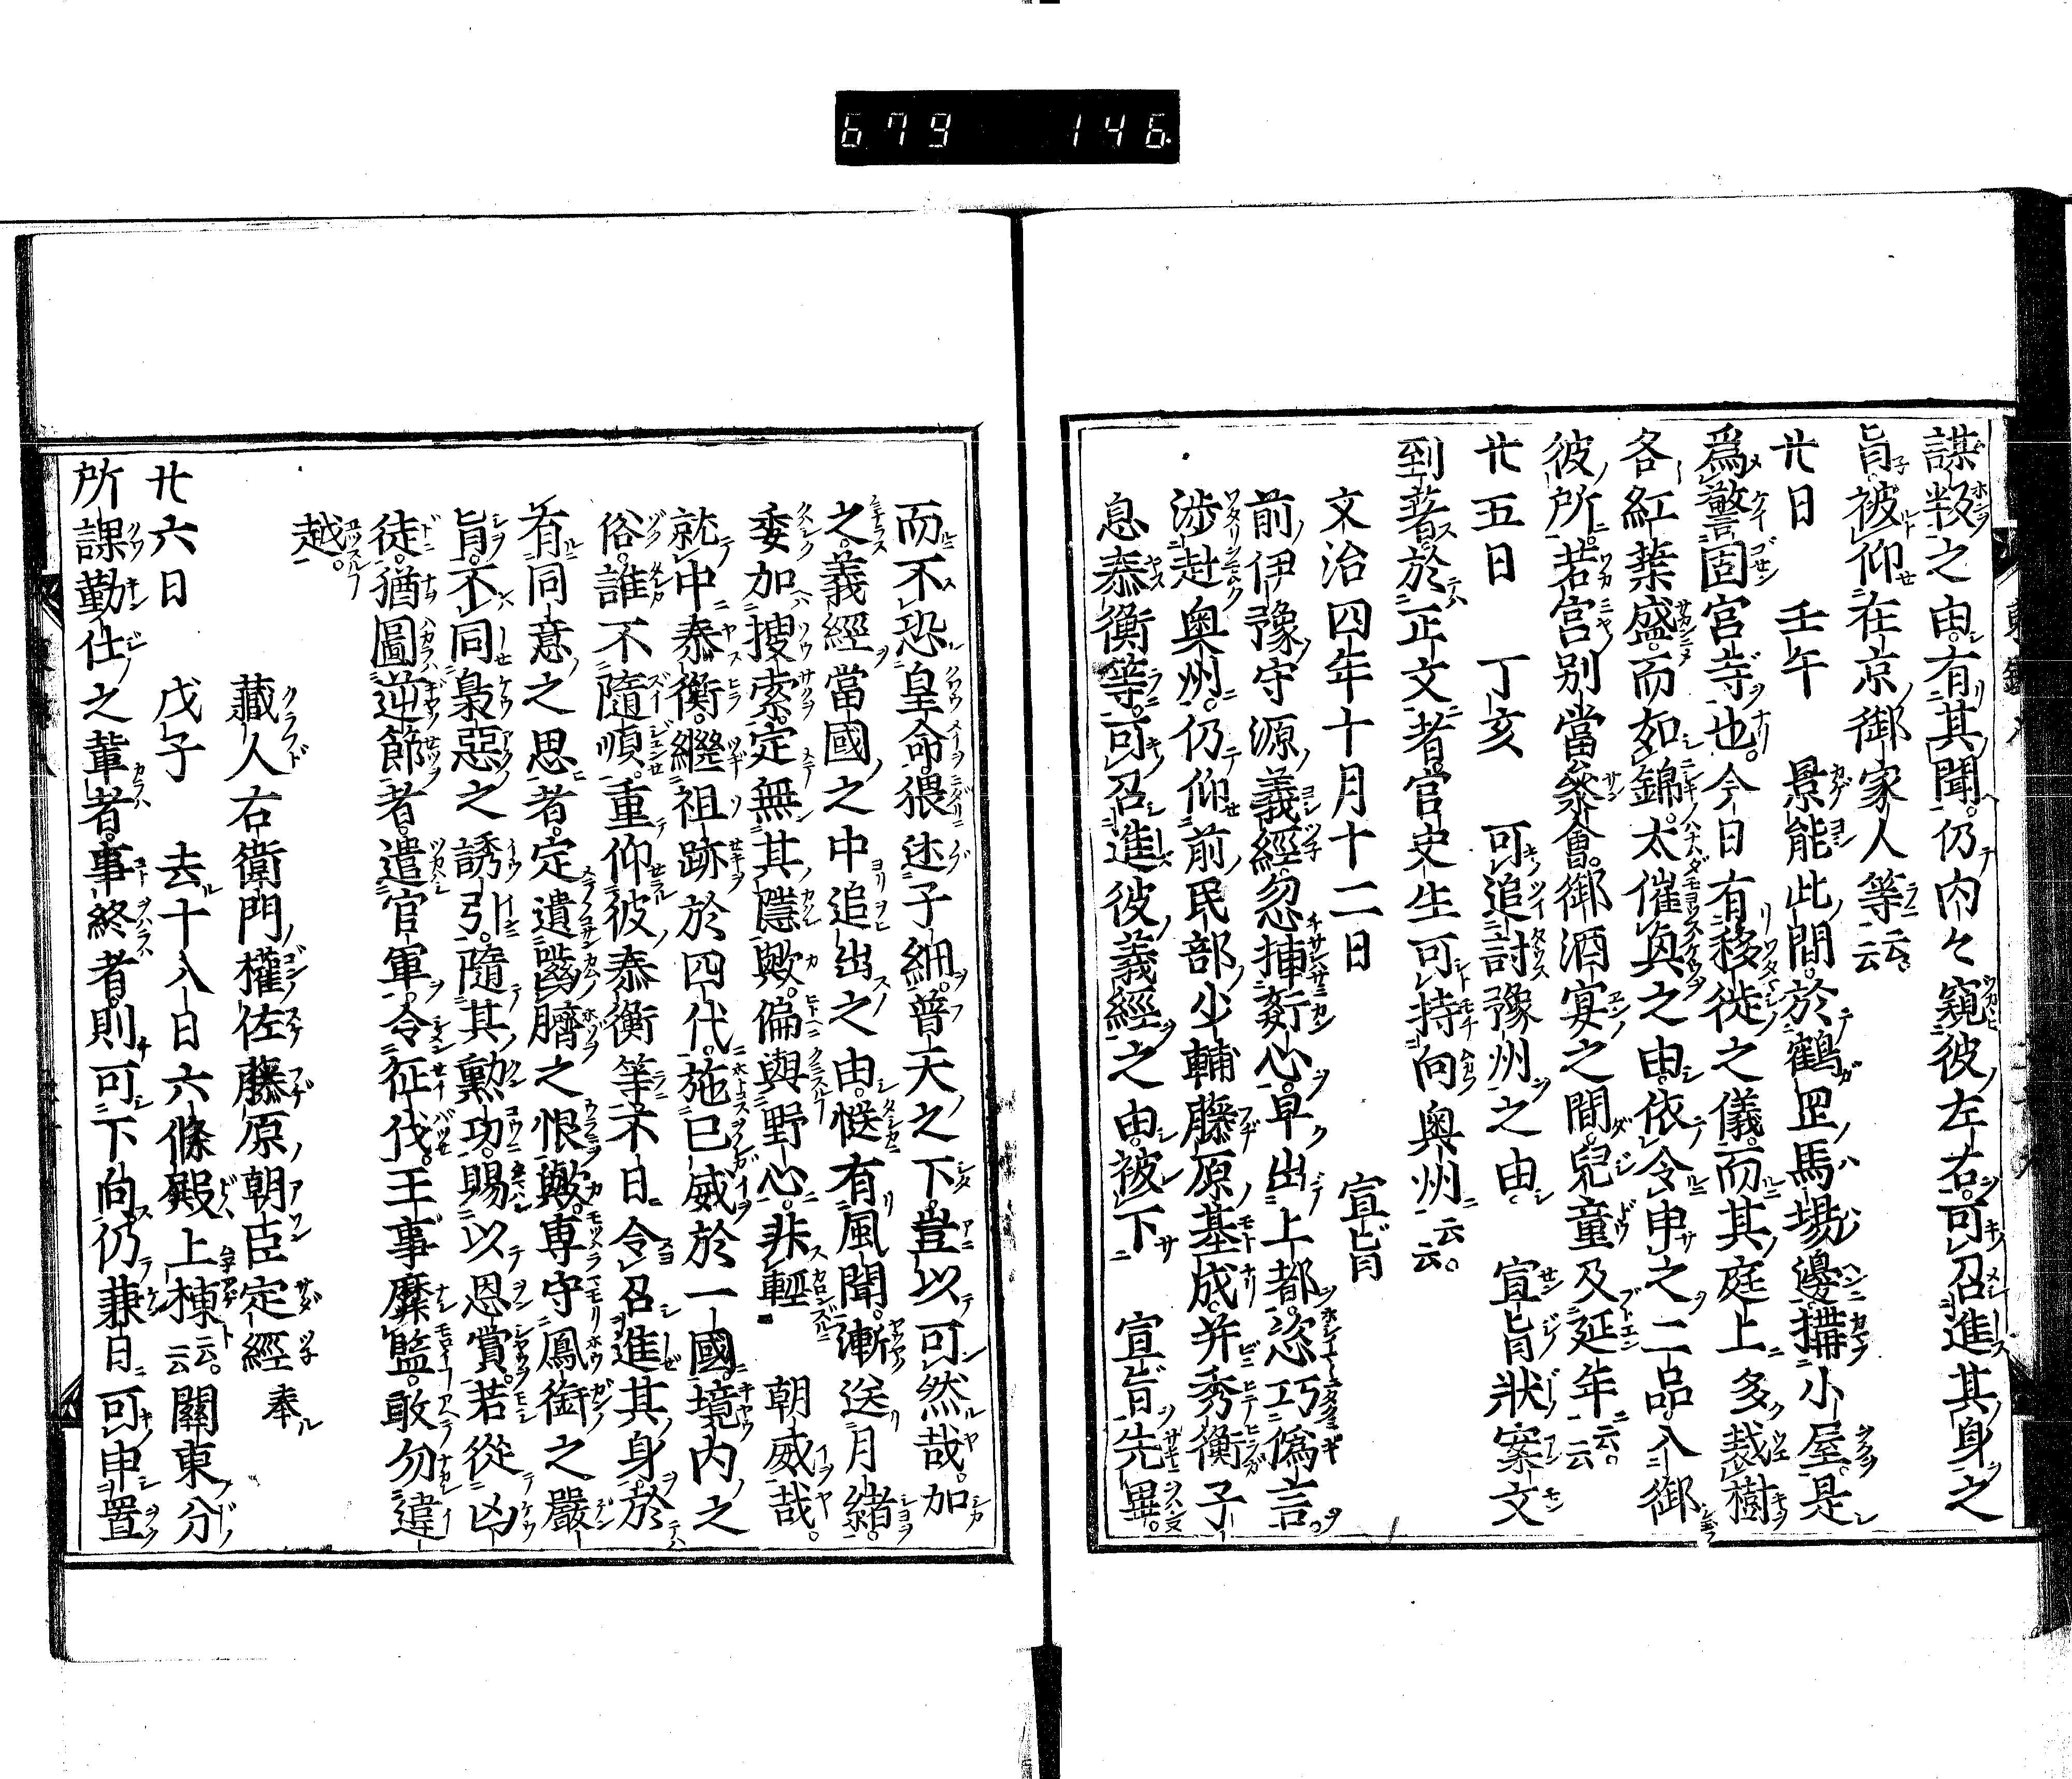 679 146
謀叛之由。有其聞。仍内々窺彼左右。可召進其身之
旨。被仰在京御家人等云云。
廿日 壬午 景能此間。於鶴岡馬場邊。搆小屋。是
爲警固宮寺也。今日有移徙之儀。而其庭上多裁樹
各紅葉盛。而如錦。太催奐之由。依令申之。二品入御
彼所。若宮別當參會。御酒宴之間。兒童及延年云云。
廿五日 丁亥 可追討豫州之由。 宣旨狀案文
到著。於正文者。官史生可持向奥州云云。
文治四年十月十二日 宣旨
前伊豫守源義經。忽揷姧心。早出上都。恣巧僞言
渉赴奥州。仍仰前民部少輔藤原基成。并秀衡子
息泰衡等。可召進彼義經之由。被下 宣旨先畢。
而不恐皇命。猥述子細。普天之下。豈以可然哉。加
之。義經當國之中追出之由。慥有風聞。漸送月緒。
委加搜索。定無其隱歟。偏與野心。非輕 朝威哉。
就中泰衡。繼祖跡於四代。施已威於一國。境内之
俗。誰不隨順。重仰彼泰衡等。不日令召進其身。於
有同意之思者。定遺噬臍之恨歟。専守鳳銜之嚴
旨。不同梟惡之誘引。隨其勳功。賜以恩賞。若從凶
徒。猶圖逆節者。遣官軍。令征伐。王事靡盬。敢勿違
越。
藏人右衛門權佐藤原朝臣定經 奉
廿六日 戊子 去十八日六條殿上棟云云。關東分
所課勤仕之輩者。事終者則可下向。仍兼日可申置